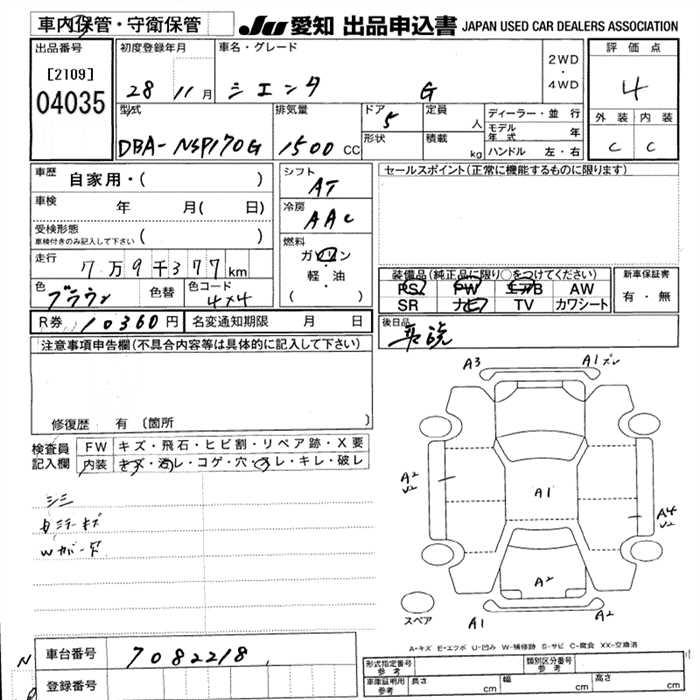 車内保管・守衛保管
JU 愛知 出品申込書 JAPAN USED CAR DEALERS ASSOCIATION
出品番号
[2109]
04035
初度登録年月
28 11月
車名・グレード
シエンタ G
2WD
・
4WD
評価点
4
外装 内装
C C
型式
DBA-NSP170G
排気量
1500 CC
ドア
5
形状
定員
人
積載
kg
ディーラー・並行
モデル年式 年
ハンドル 左・右
車歴
自家用・( )
車検
年 月( 日)
受検形態
車検付きのみ記入して下さい ( )
走行
7万9千377km
色
ブラウン
色替
色コード
4X4
シフト
AT
冷房
AAC
燃料
ガソリン
・
軽・油
( )
セールスポイント(正常に機能するものに限ります)
装備品(純正品に限り○をつけてください)
PS PW エアB AW
SR ナビ TV カワシート
新車保証書
有・無
後日品
R券 10360円
名変通知期限 月 日
注意事項申告欄(不具合内容等は具体的に記入して下さい)
修復歴 有 (箇所 )
検査員
記入欄
FW キズ・飛石・ヒビ割・リペア跡・X要
内装 キズ・汚レ・コゲ・穴・スレ・キレ・破レ
シミ
Wガード
A3
A1ズレ
A2
U2
A1
A4
U2
A2
A1
A2
スペア
A-キズ E-エクボ U-凹み W-補修跡 S-サビ C-腐食 XX-交換済
車台番号
7082218
登録番号
形式指定番号
参考
類別区分番号
参考
車庫証明用
参考
長さ cm
幅 cm
高さ cm